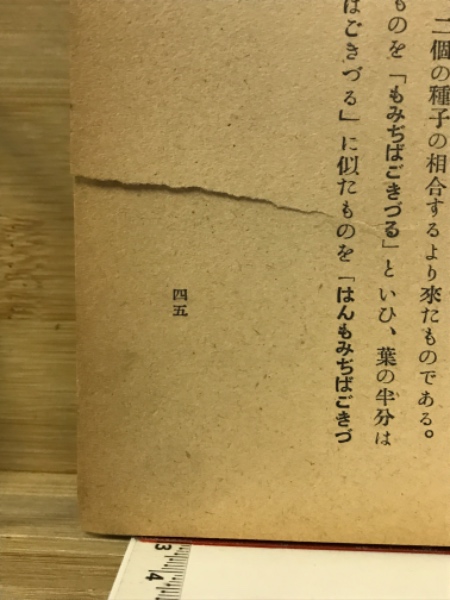 二個の種子の相合するより來たものである。
ものを「もみぢばごきづる」といひ、葉の半分は
はごきづる」に似たものを「はんもみぢばごきづ
四五
3
4